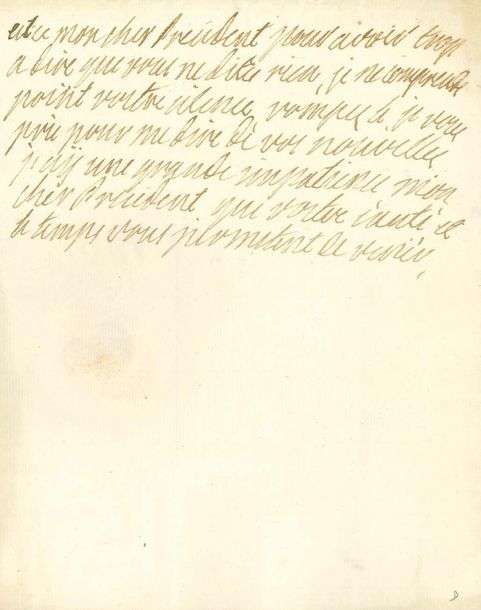 est ce mon cher President pour avoir trop
a dire que vous ne dite rien, je ne comprends
point vostre silence, rompez le je vous
prie pour me dire de vos nouvelles
j'ay une grande impatience mon
cher President que vostre santé et
le temps vous promettent de